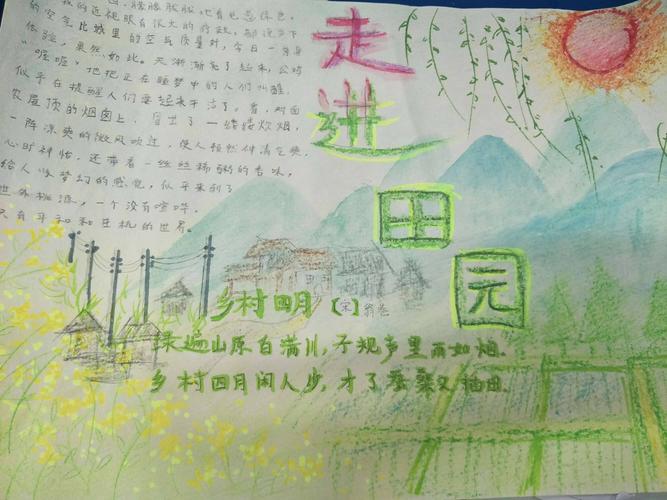 的近视眼有很大的疗效，都说乡下
的空气比城里的空气质量好，今日一身
体验，果然如此。天渐渐亮了起来，公鸡
“喔喔”地把正在睡梦中的人们叫醒，
似乎在提醒人们要起来干活了。看，对面
农屋顶的烟囱上，冒出了一缕缕炊烟，
一阵凉爽的微风吹过，使人顿然神清气爽，
心旷神怡，还带着一丝丝稀粥的香味，
给人像梦幻的感觉，似乎来到了
世外桃源，一个没有喧哗，
只有平和和生机的世界。
走进田园
乡村四月【宋】翁卷
绿遍山原白满川，子规声里雨如烟。
乡村四月闲人少，才了蚕桑又插田。